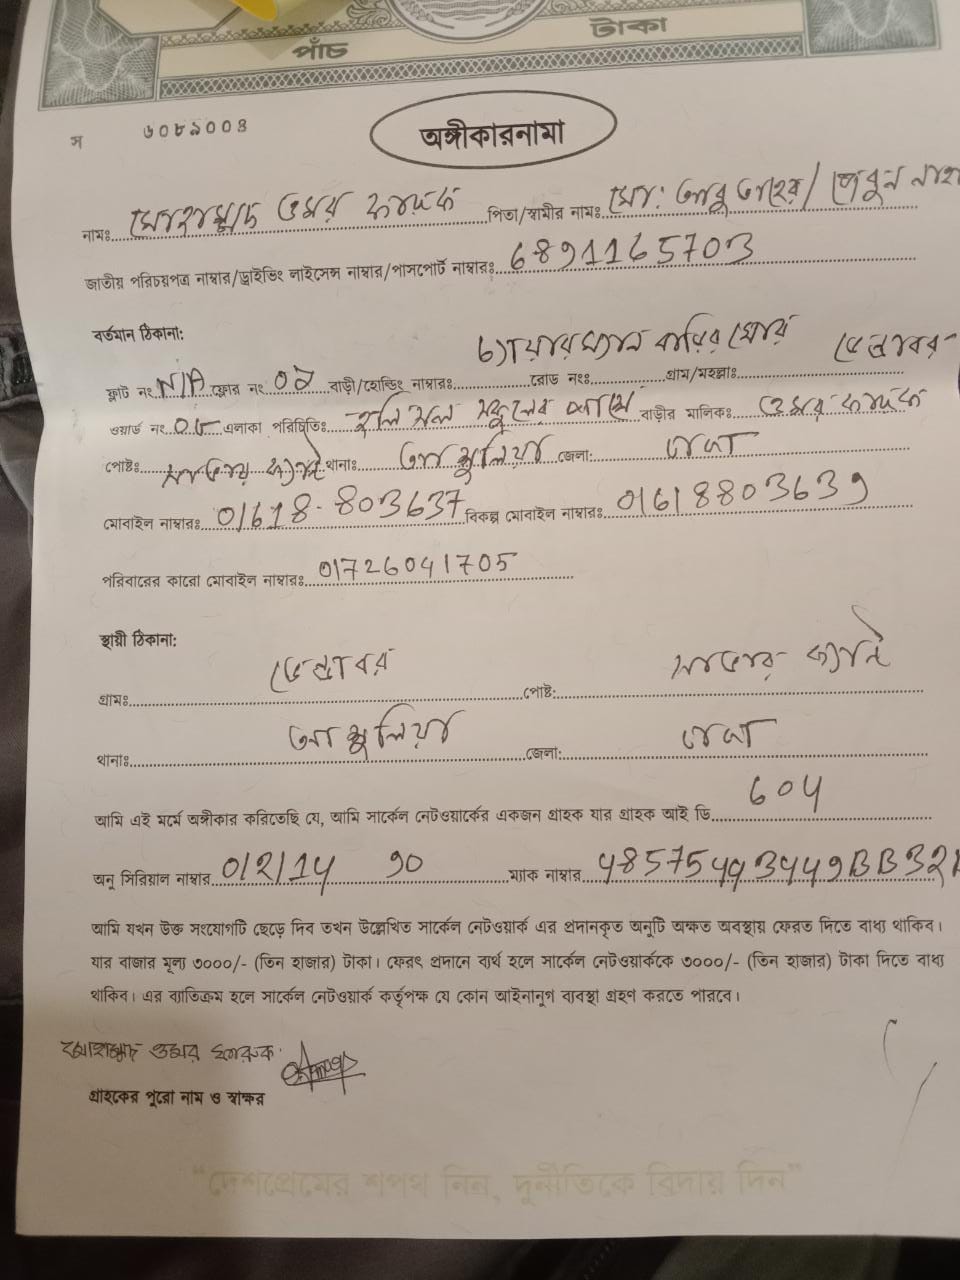 পাঁচ টাকা
স ৬০৮৯০০৪
অঙ্গীকারনামা
নামঃ মোহাম্মদ ওমর ফারুক পিতা/স্বামীর নামঃ মো: আবু তাহের/
জাতীয় পরিচয়পত্র নাম্বার/ড্রাইভিং লাইসেন্স নাম্বার/পাসপোর্ট নাম্বারঃ 6891165703
বর্তমান ঠিকানা:
ফ্লাট নং N/A ফ্লোর নং 02 বাড়ী/হোল্ডিং নাম্বারঃ রোড নংঃ গ্রাম/মহল্লাঃ
ওয়ার্ড নং এলাকা পরিচিতিঃ স্কুলের বাড়ীর মালিকঃ ওমর ফারুক
পোষ্টঃ থানাঃ আশুলিয়া জেলা: ঢাকা
মোবাইল নাম্বারঃ 01618-803637 বিকল্প মোবাইল নাম্বারঃ 01618803639
পরিবারের কারো মোবাইল নাম্বারঃ 01726041705
স্থায়ী ঠিকানা:
গ্রামঃ পোষ্ট:
থানাঃ আশুলিয়া জেলা: ঢাকা
আমি এই মর্মে অঙ্গীকার করিতেছি যে, আমি সার্কেল নেটওয়ার্কের একজন গ্রাহক যার গ্রাহক আই ডি 604
অনু সিরিয়াল নাম্বার ম্যাক নাম্বার
আমি যখন উক্ত সংযোগটি ছেড়ে দিব তখন উল্লেখিত সার্কেল নেটওয়ার্ক এর প্রদানকৃত অনুটি অক্ষত অবস্থায় ফেরত দিতে বাধ্য থাকিব।
যার বাজার মূল্য ৩০০০/- (তিন হাজার) টাকা। ফেরৎ প্রদানে ব্যর্থ হলে সার্কেল নেটওয়ার্ককে ৩০০০/- (তিন হাজার) টাকা দিতে বাধ্য
থাকিব। এর ব্যতিক্রম হলে সার্কেল নেটওয়ার্ক কর্তৃপক্ষ যে কোন আইনানুগ ব্যবস্থা গ্রহণ করতে পারবে।
মোহাম্মদ ওমর ফারুক
গ্রাহকের পুরো নাম ও স্বাক্ষর
“দেশপ্রেমের শপথ নিন, দুর্নীতিকে বিদায় দিন”